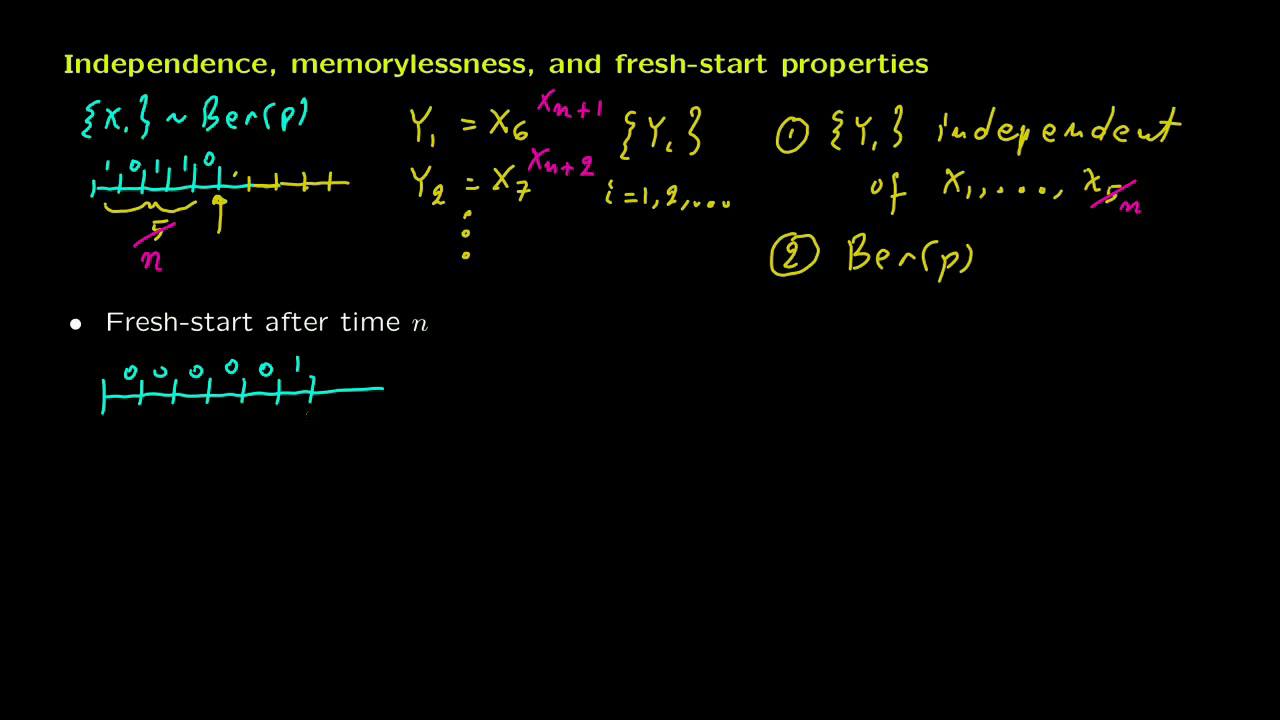 Independence, memorylessness, and fresh-start properties
{Xᵢ} ~ Ber(p)
1 0 1 1 0
5
n
Y₁ = X₆ Xₙ₊₁
Y₂ = X₇ Xₙ₊₂
{Yᵢ}
i = 1, 2, ...
① {Yᵢ} independent
of X₁, ..., X₅ n
② Ber(p)
• Fresh-start after time n
0 0 0 0 0 1